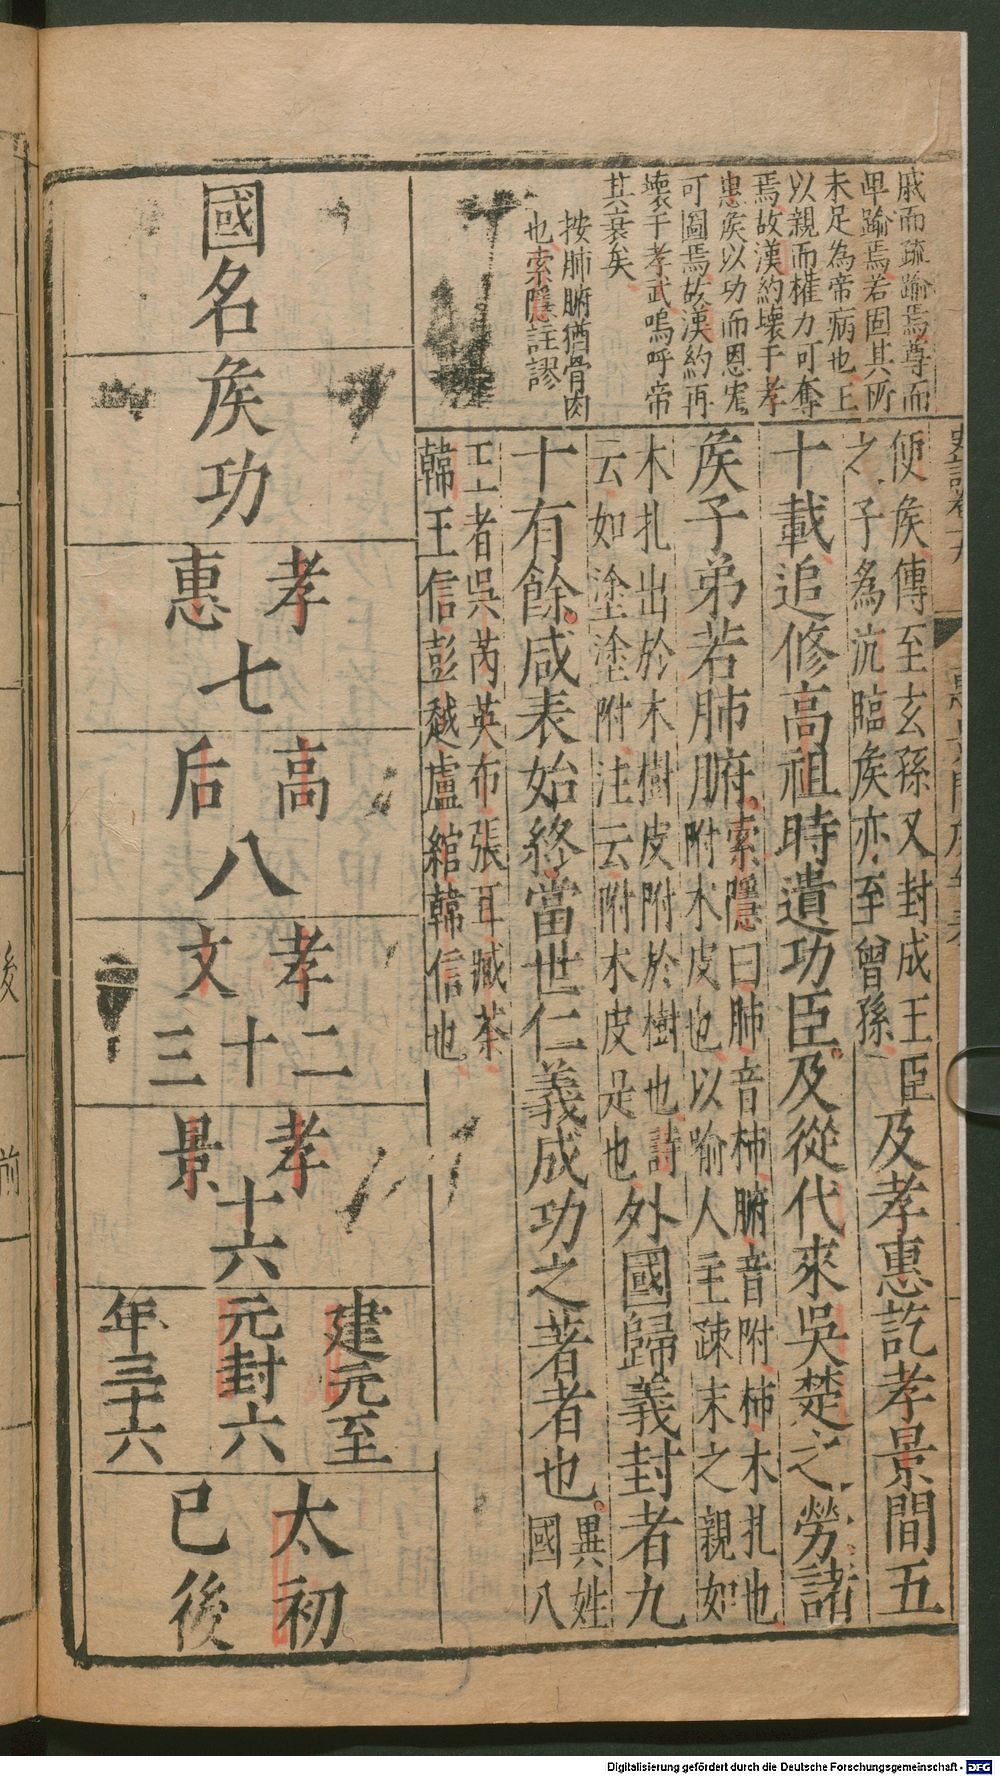 戚而疏踰焉尊而
卑踰焉若固其所
未足為帝病也上
以親而權力可奪
焉故漢約壞于孝
惠矦以功而恩寵
可圖焉故漢約再
壞于孝武嗚呼帝
其衰矣
按肺腑猶骨肉
也索隱註謬
便矦傳至玄孫又封成王臣
之子為沆臨矦亦至曾孫
及孝惠訖孝景間五
十載追修高祖時遺功臣及從代來吳楚之勞諸
矦子弟若肺腑
索隱曰肺音柿腑音附柿木扎也
附木皮也以喻人主疎末之親如
木扎出於木樹皮附於樹也詩
云如塗塗附注云附木皮是也
外國歸義封者九
十有餘咸表始終當世仁義成功之著者也
異姓
國八
王者吳芮英布張耳臧荼
韓王信彭越盧綰韓信也
國名
矦功
孝惠七
高后八
孝文二十三
孝景十六
建元至
元封六
年三十六
太初
已後
後
前
Digitalisierung gefördert durch die Deutsche Forschungsgemeinschaft - DFG